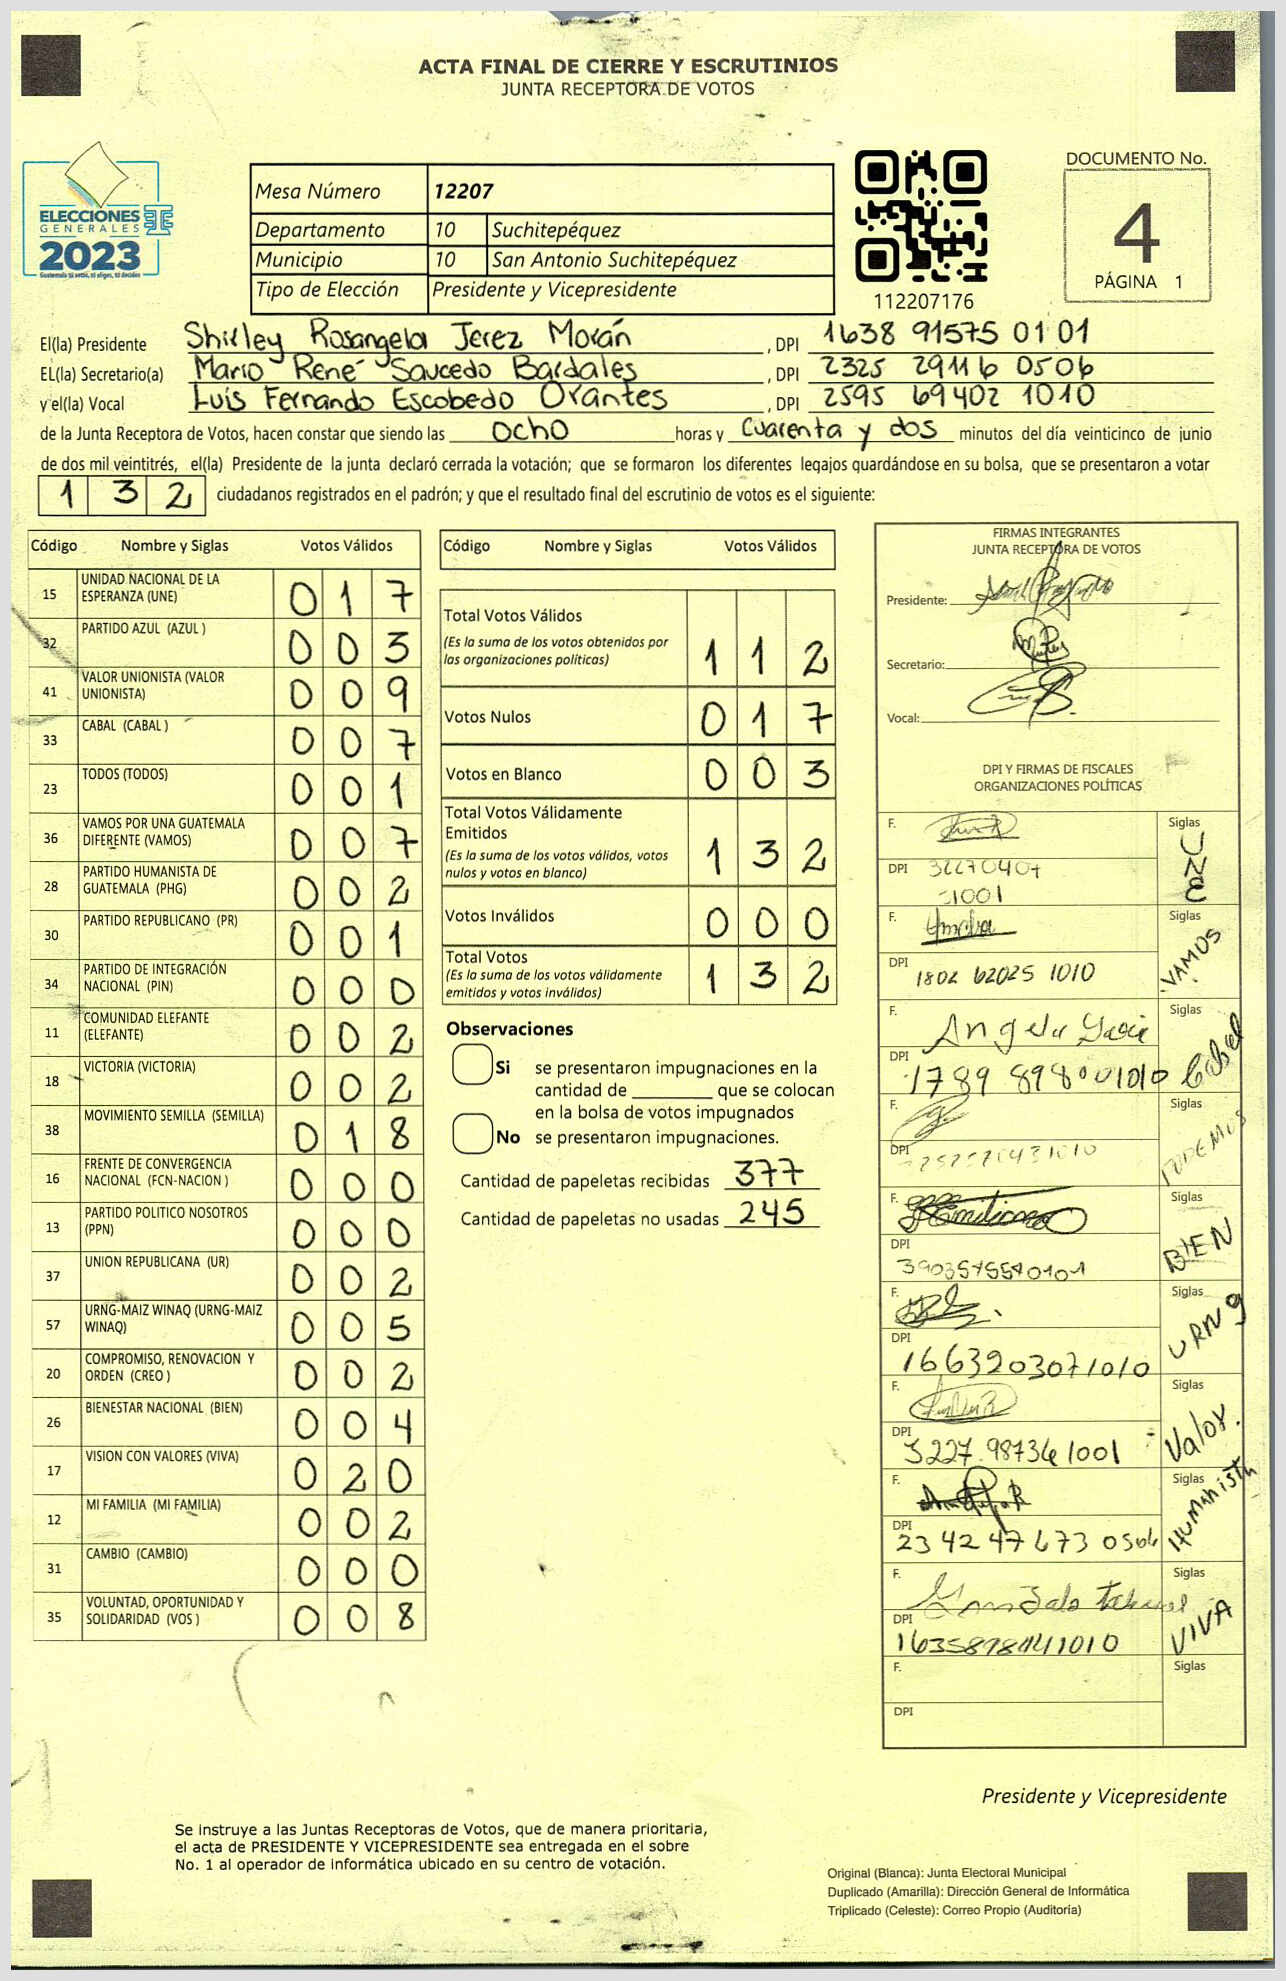 ACTA FINAL DE CIERRE Y ESCRUTINIOS
JUNTA RECEPTORA DE VOTOS
ELECCIONES
GENERALES
2023
Mesa Número 12207
Departamento 10 Suchitepéquez
Municipio 10 San Antonio Suchitepéquez
Tipo de Elección Presidente y Vicepresidente
112207176
DOCUMENTO No.
4
PÁGINA 1
El(la) Presidente Shirley Rosangela Jerez Morán, DPI 1638 91575 0101
EL(la) Secretario(a) Mario René Saucedo Bardales, DPI 2325 29116 0506
y el(la) Vocal Luis Fernando Escobedo Orantes, DPI 2595 69402 1010
de la Junta Receptora de Votos, hacen constar que siendo las ocho horas y Cuarenta y dos minutos del día veinticinco de junio
de dos mil veintitrés, el(la) Presidente de la junta declaró cerrada la votación; que se formaron los diferentes legajos quardándose en su bolsa, que se presentaron a votar
132 ciudadanos registrados en el padrón; y que el resultado final del escrutinio de votos es el siguiente:
Código Nombre y Siglas Votos Válidos
15 UNIDAD NACIONAL DE LA ESPERANZA (UNE) 0 1 7
32 PARTIDO AZUL (AZUL ) 0 0 3
41 VALOR UNIONISTA (VALOR UNIONISTA) 0 0 9
33 CABAL (CABAL ) 0 0 7
23 TODOS (TODOS) 0 0 1
36 VAMOS POR UNA GUATEMALA DIFERENTE (VAMOS) 0 0 7
28 PARTIDO HUMANISTA DE GUATEMALA (PHG) 0 0 2
30 PARTIDO REPUBLICANO (PR) 0 0 1
34 PARTIDO DE INTEGRACIÓN NACIONAL (PIN) 0 0 0
11 COMUNIDAD ELEFANTE (ELEFANTE) 0 0 2
18 VICTORIA (VICTORIA) 0 0 2
38 MOVIMIENTO SEMILLA (SEMILLA) 0 1 8
16 FRENTE DE CONVERGENCIA NACIONAL (FCN-NACION ) 0 0 0
13 PARTIDO POLITICO NOSOTROS (PPN) 0 0 0
37 UNION REPUBLICANA (UR) 0 0 2
57 URNG-MAIZ WINAQ (URNG-MAIZ WINAQ) 0 0 5
20 COMPROMISO, RENOVACION Y ORDEN (CREO ) 0 0 2
26 BIENESTAR NACIONAL (BIEN) 0 0 4
17 VISION CON VALORES (VIVA) 0 2 0
12 MI FAMILIA (MI FAMILIA) 0 0 2
31 CAMBIO (CAMBIO) 0 0 0
35 VOLUNTAD, OPORTUNIDAD Y SOLIDARIDAD (VOS ) 0 0 8
Código Nombre y Siglas Votos Válidos
Total Votos Válidos 1 1 2
(Es la suma de los votos obtenidos por
las organizaciones políticas)
Votos Nulos 0 1 7
Votos en Blanco 0 0 3
Total Votos Válidamente
Emitidos 1 3 2
(Es la suma de los votos válidos, votos
nulos y votos en blanco)
Votos Inválidos 0 0 0
Total Votos 1 3 2
(Es la suma de los votos válidamente
emitidos y votos inválidos)
Observaciones
Si se presentaron impugnaciones en la
cantidad de ________ que se colocan
en la bolsa de votos impugnados
No se presentaron impugnaciones.
Cantidad de papeletas recibidas 377
Cantidad de papeletas no usadas 245
FIRMAS INTEGRANTES
JUNTA RECEPTORA DE VOTOS
Presidente:
Secretario:
Vocal:
DPI Y FIRMAS DE FISCALES
ORGANIZACIONES POLÍTICAS
F. Siglas UNE
DPI
1001
F. Siglas VAMOS
DPI 1802 62025 1010
F. Angela Siglas Cabal
DPI 1789 898001010
F. Siglas PODEMOS
DPI
F. Siglas BIEN
DPI
F. Siglas URNG
DPI 1663203071010
F. Siglas Valor.
DPI 3227.98736 1001
F. Siglas Humanista
DPI 2342 47673 0506
F. Siglas VIVA
DPI
F. Siglas
DPI
Presidente y Vicepresidente
Se instruye a las Juntas Receptoras de Votos, que de manera prioritaria,
el acta de PRESIDENTE Y VICEPRESIDENTE sea entregada en el sobre
No. 1 al operador de informática ubicado en su centro de votación.
Original (Blanca): Junta Electoral Municipal
Duplicado (Amarilla): Dirección General de Informática
Triplicado (Celeste): Correo Propio (Auditoría)